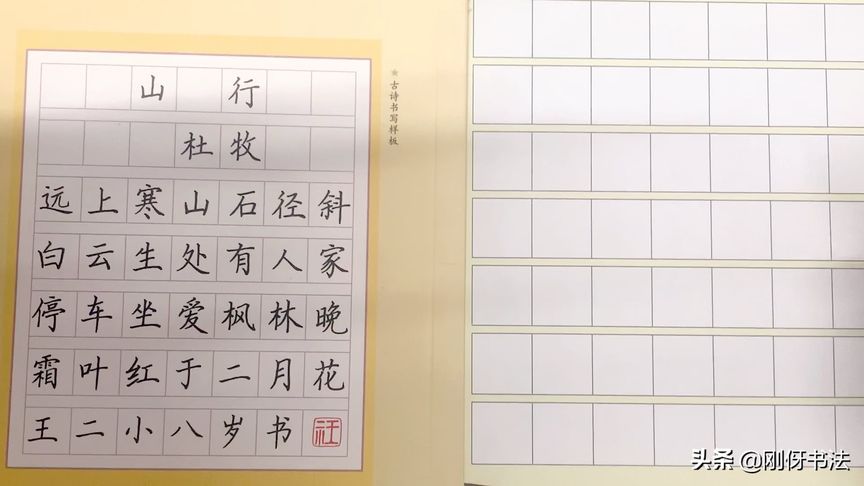 山行
杜牧
远上寒山石径斜
白云生处有人家
停车坐爱枫林晚
霜叶红于二月花
王二小八岁书
古诗书写样板
头条 @刚伢书法